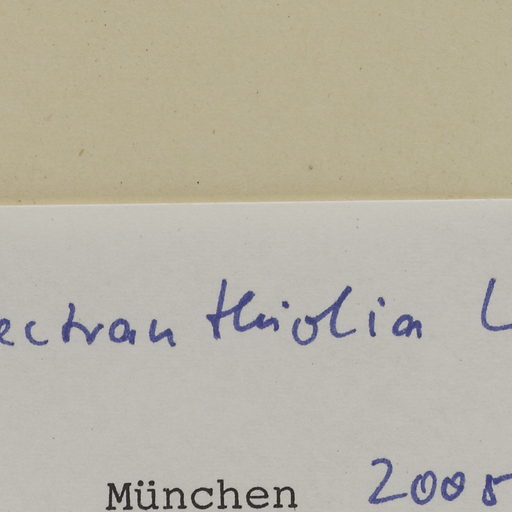 ectranthiolia L
München 2005